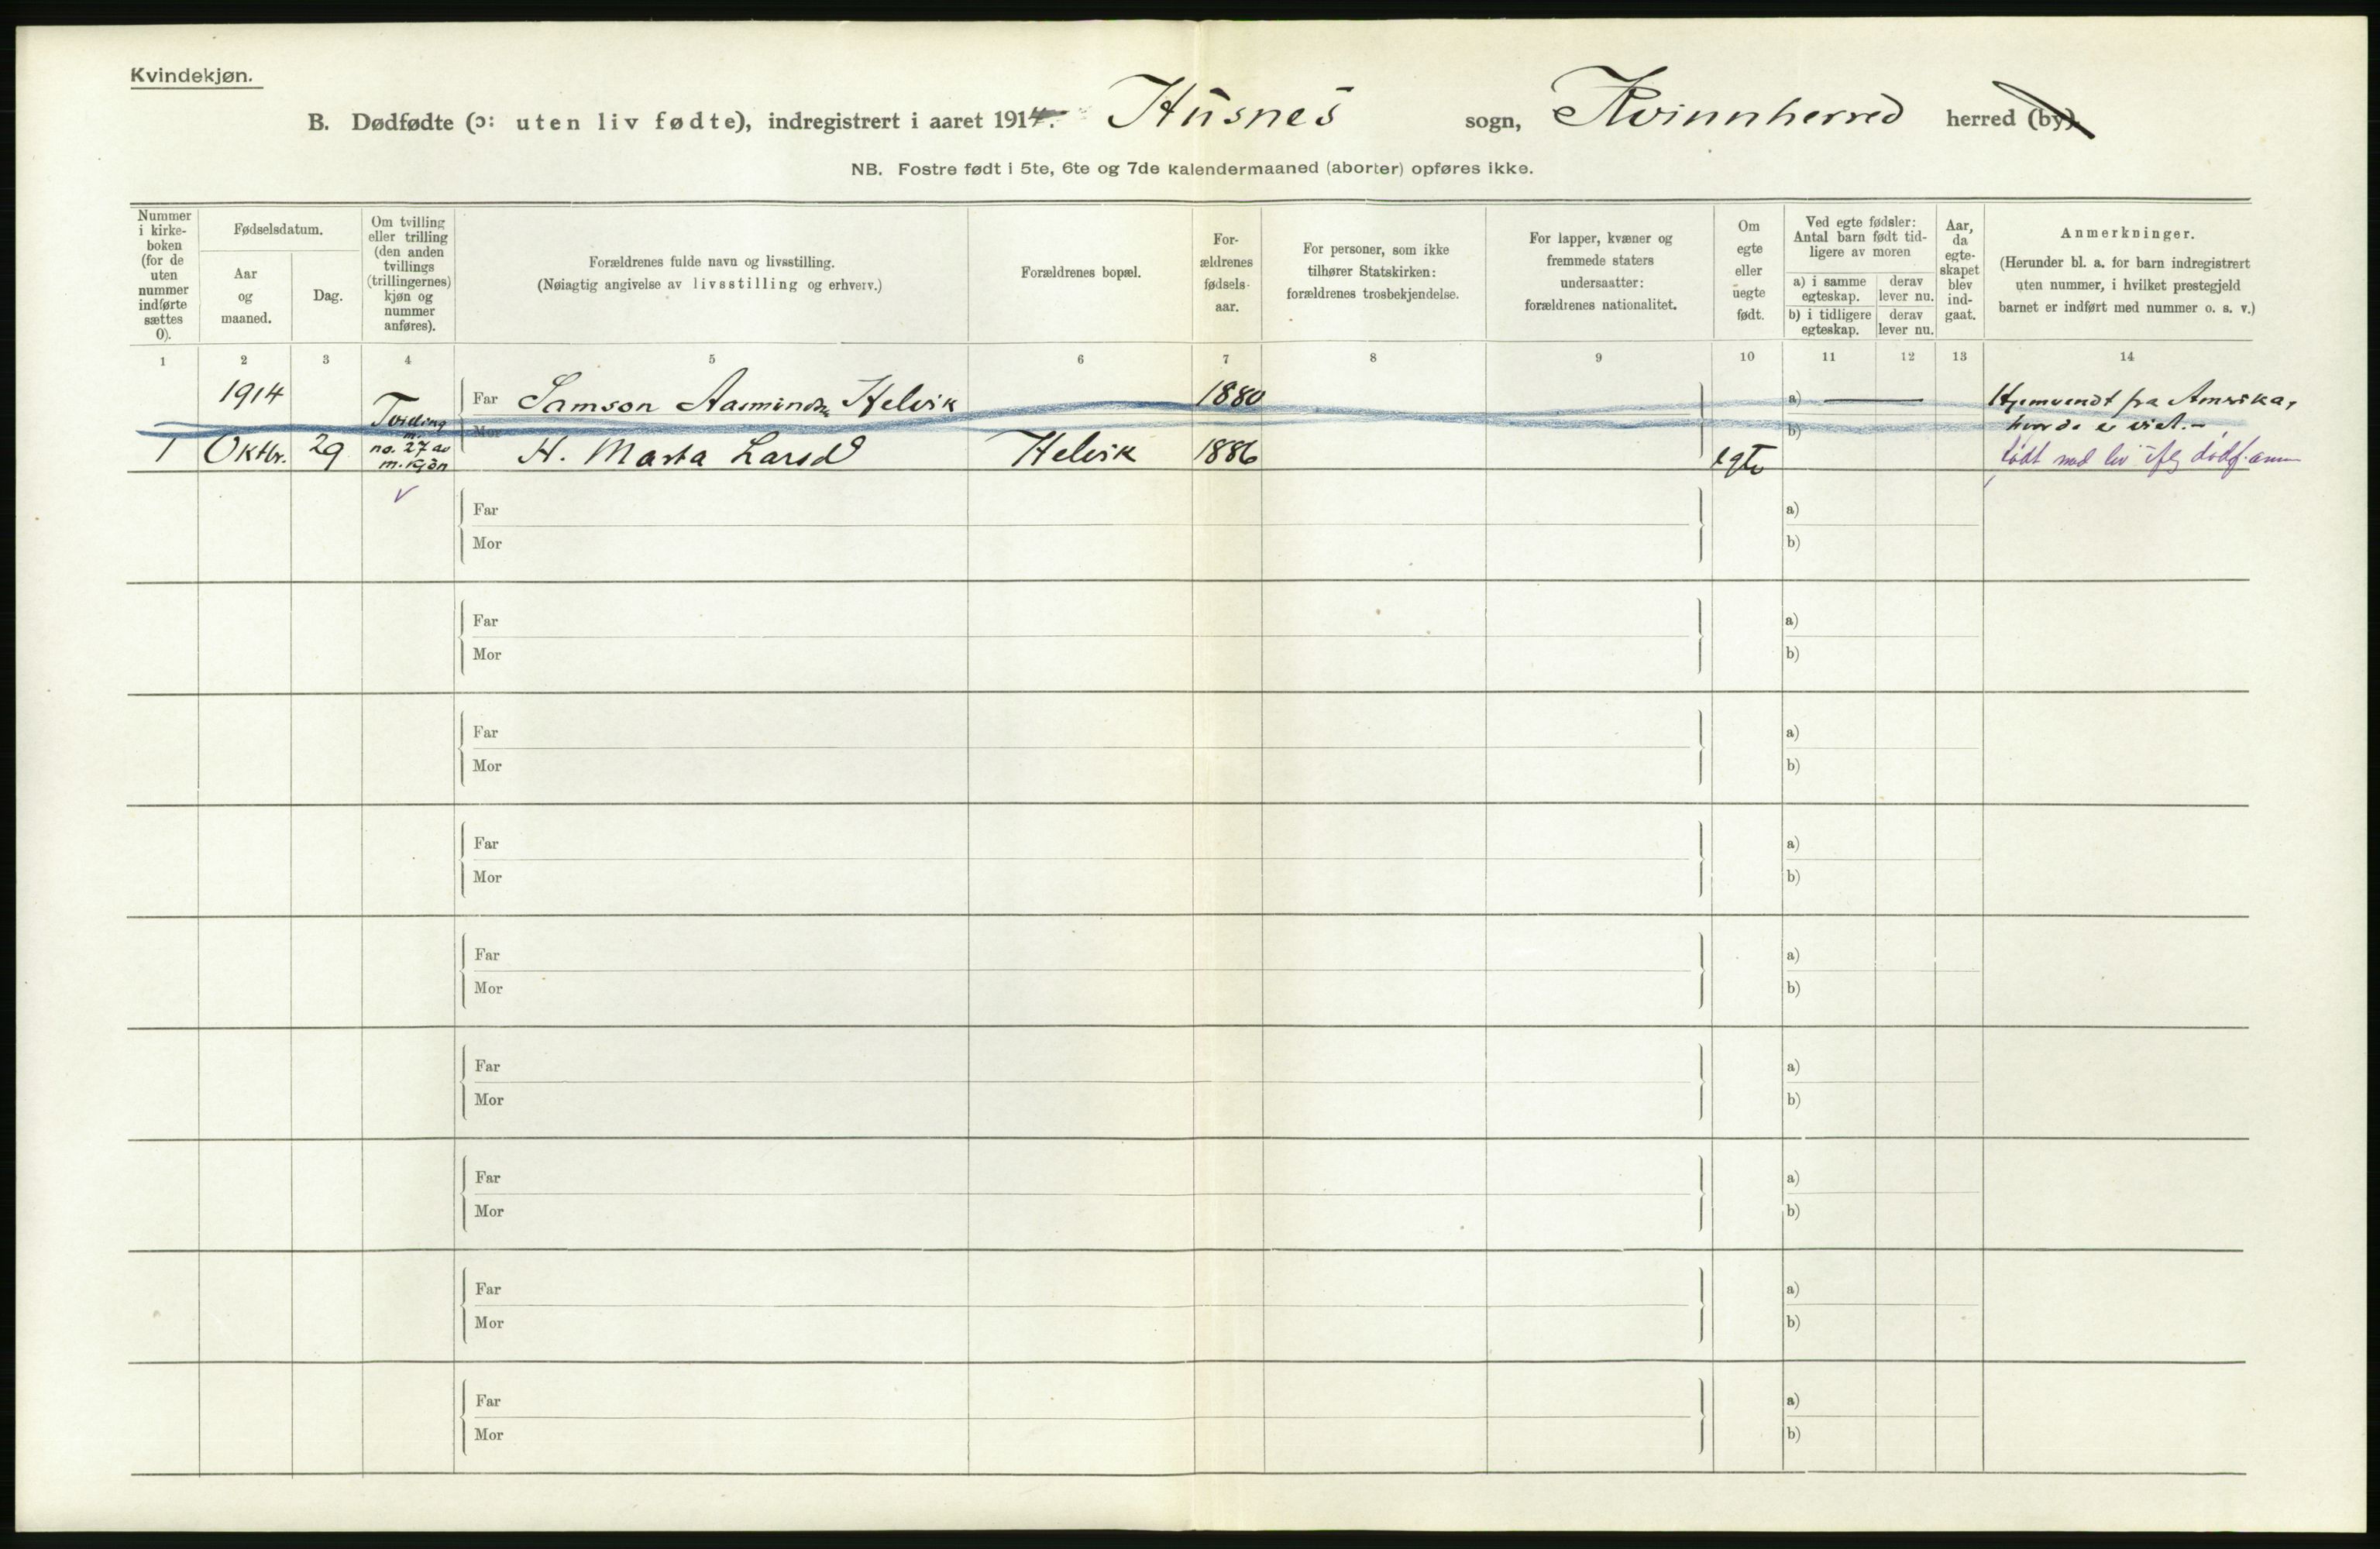 Kvindekjøn.
B. Dødfødte (ɔ: uten liv fødte), indregistrert i aaret 1914. Husnes sogn, Kvinnherred herred (by).
NB. Fostre født i 5te, 6te og 7de kalendermaaned (aborter) opføres ikke.
Nummer
i kirke-
boken
(for de
uten
nummer
indførte
sættes
0).
Fødselsdatum.
Aar
og
maaned.
Dag.
Om tvilling
eller trilling
(den anden
tvillings
(trillingernes)
kjøn og
nummer
anføres).
Forældrenes fulde navn og livsstilling.
(Nøiagtig angivelse av livsstilling og erhverv.)
Forældrenes bopæl.
For-
ældrenes
fødsels-
aar.
For personer, som ikke
tilhører Statskirken:
forældrenes trosbekjendelse.
For lapper, kvæner og
fremmede staters
undersaatter:
forældrenes nationalitet.
Om
egte
eller
uegte
født.
Ved egte fødsler:
Antal barn født tid-
ligere av moren
a) i samme
egteskap.
derav
lever nu.
b) i tidligere
egteskap.
derav
lever nu.
Aar,
da
egte-
skapet
blev
ind-
gaat.
Anmerkninger.
(Herunder bl. a. for barn indregistrert
uten nummer, i hvilket prestegjeld
barnet er indført med nummer o. s. v.)
1 2 3 4 5 6 7 8 9 10 11 12 13 14
1914 Far Samson Aasmunds. Helvik 1880 a) — Hjemvendt fra Amerika,
Tvilling Mor b) hvor de er viet.-
1 Oktbr. 29 no. 27 av H. Marta Larsd Helvik 1886 egte født med liv ifg dødf.anm
m.kjøn
Far a)
Mor b)
Far a)
Mor b)
Far a)
Mor b)
Far a)
Mor b)
Far a)
Mor b)
Far a)
Mor b)
Far a)
Mor b)
Far a)
Mor b)
Far a)
Mor b)